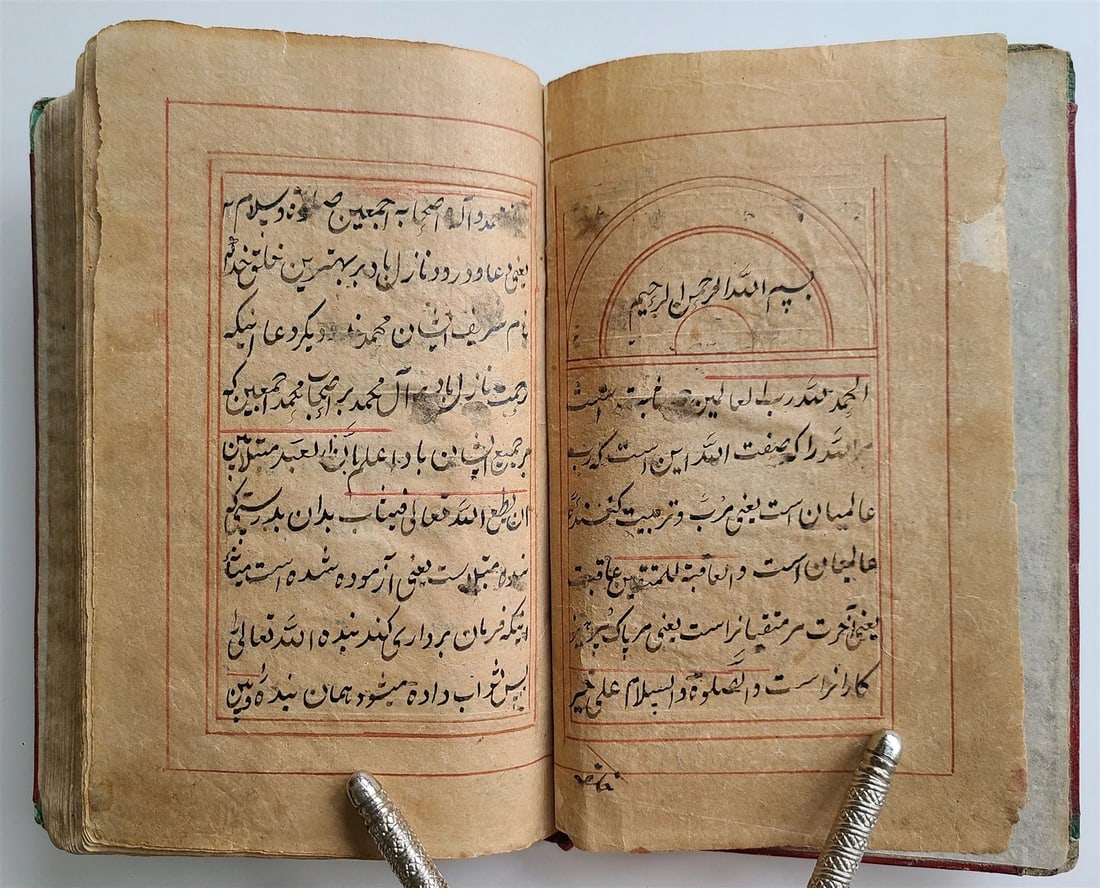 بسم الله الرحمن الرحیم
الحمد لله رب العالمین است
مر الله را که صفت الله این است که رب
عالمیان است یعنی مرب و تربیت کنندهٔ
عالمیان است والعاقبة للمتقین عاقبت
یعنی آخرت مر متقیانراست یعنی مر پاک
کارانراست والصلوة والسلام علی خیر
واله اصحابه اجمعین وسلام
یعنی دعا و درود نازل باد بر بهترین خلق
نام شریف ایشان محمد دیکر دعا اینکه
رحمت نازل باد بر آل محمد بر اصحاب محمد اجمعین که
بر جمیع ایشان باد اعلم بان العبد مبتلا بین
ان یطع الله تعالی فیثاب بدان بدرستیکه
بنده مبتلا ست یعنی آزموده شده است میانهٔ
اینکه فرمان برداری کند بنده الله تعالی را
پس ثواب داده میشود همان بنده و بین